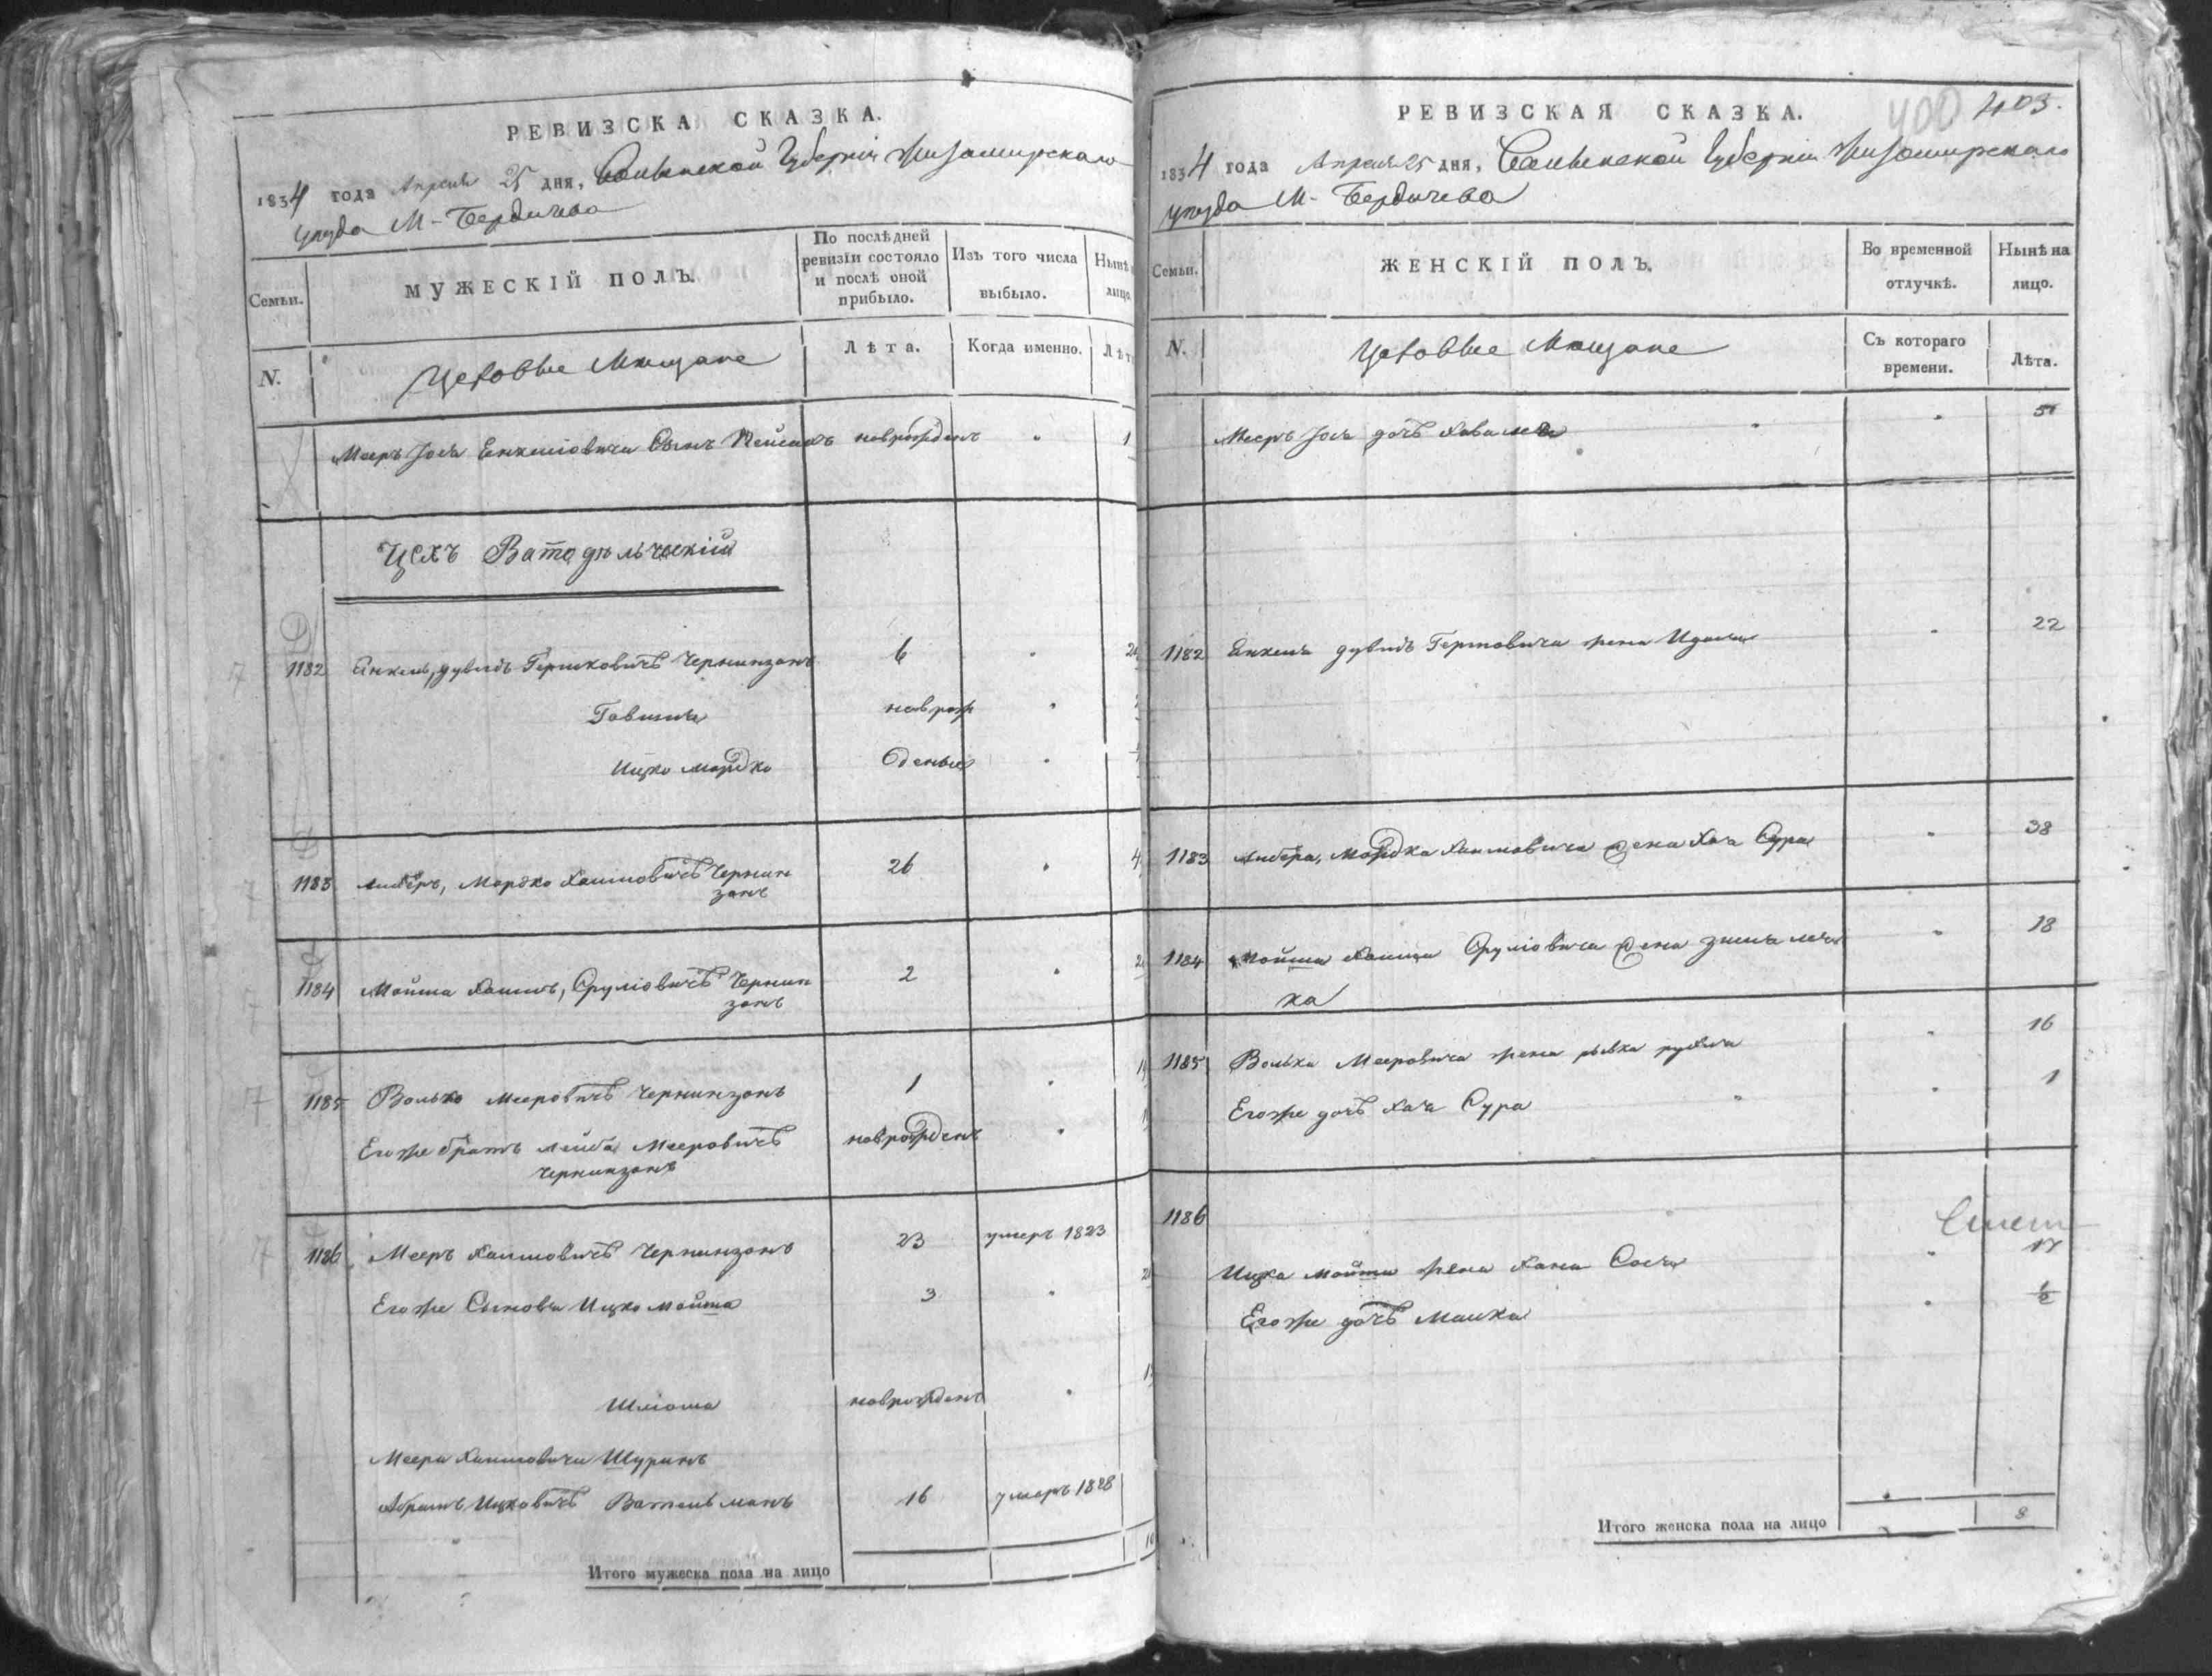 РЕВИЗСКА СКАЗКА.
1834 года Апреля 25 дня, Волынской Губерніи Житомирскаго
уезда М- Бердичева
Семьи.
МУЖЕСКІЙ ПОЛЪ.
По послѣдней ревизіи состояло и послѣ оной прибыло.
Изъ того числа выбыло.
Нынѣ
лицо
N.
Цеховые Мещане
Лѣта.
Когда именно.
Лѣт
Мееръ Іося Енкеліовича Сынъ Пейсахъ новорожденъ 1
Цехъ Ватодѣльческій
1182 Енкель, дувидъ Гершковичъ Чернинзонъ 6
Говшия новрож
Ицко мордко Оденыи
1183 Анберъ, Мордко Хаимовичъ Чернин 26 4
зонъ
1184 Мойша Хаимъ, Сруліовичъ Чернин 2 2
зонъ
1185 Волько Мееровичъ Чернинзонъ 1
Егоже братъ лейба Мееровичъ новрожденъ
Чернинзонъ
1186 Мееръ Хаимовичъ Чернинзонъ 23 умеръ 1823
Егоже Сыновья Ицко мойша 3
Шліома новрожденъ
Меера Хаимовича Шуринъ
Абрамъ Ицковичъ Вательманъ 16 умеръ 1828
Итого мужеска пола на лицо
РЕВИЗСКАЯ СКАЗКА.
400 403.
1834 года Апреля 25 дня, Волынской Губерніи Житомирскаго
уезда М- Бердичева
Семьи.
ЖЕНСКІЙ ПОЛЪ.
Во временной отлучкѣ.
Нынѣ на лицо.
N.
Цеховые Мещане
Съ котораго времени.
Лѣта.
Мееръ Іося дочь
1182 Енкеля дувидъ Гершовича жена 22
1183 Анбера, Мордка Хаимовича жена Хая Сура 38
1184 Мойши Хаима Сруліовича жена 18
ка
1185 Волька Мееровича жена рывка рухля 16
Егоже дочь Хая Сура 1
1186
Ицка мойши жена Хана Сося 17
Егоже дочь Малка 1/2
Итого женска пола на лицо 8